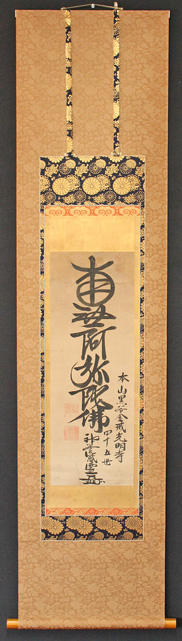 南無阿弥陀佛
本山黒谷金戒光明寺
四十五世